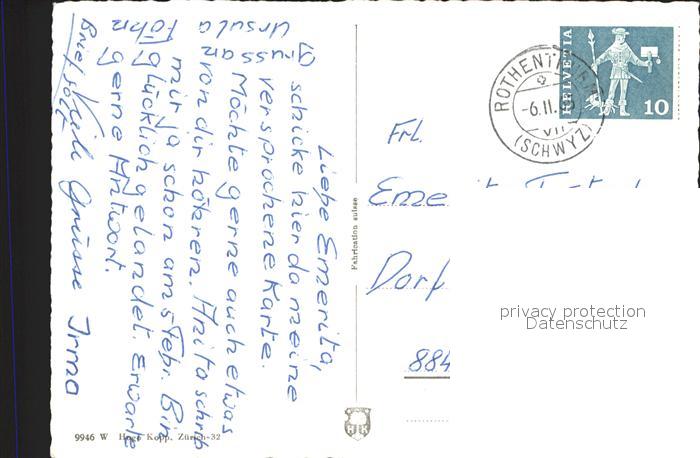 Liebe Emerita,
schicke hier da meine
versprochene Karte.
Möchte gerne auch etwas
von dir höhren. Anita schrib
mir ja schon am 5 Febr. Bin
glücklich gelandet. Erwarte
gerne Antwort.
Viele Grüsse Irma
Gruss an
Ursula
Brief folgt
Fabrication suisse
9946 W Hugo Kopp, Zürich-32
HK
ROTHENTHURM
-6.II.
VII
(SCHWYZ)
HELVETIA
10
Frl.
Eme
Dorf
884
privacy protection
Datenschutz